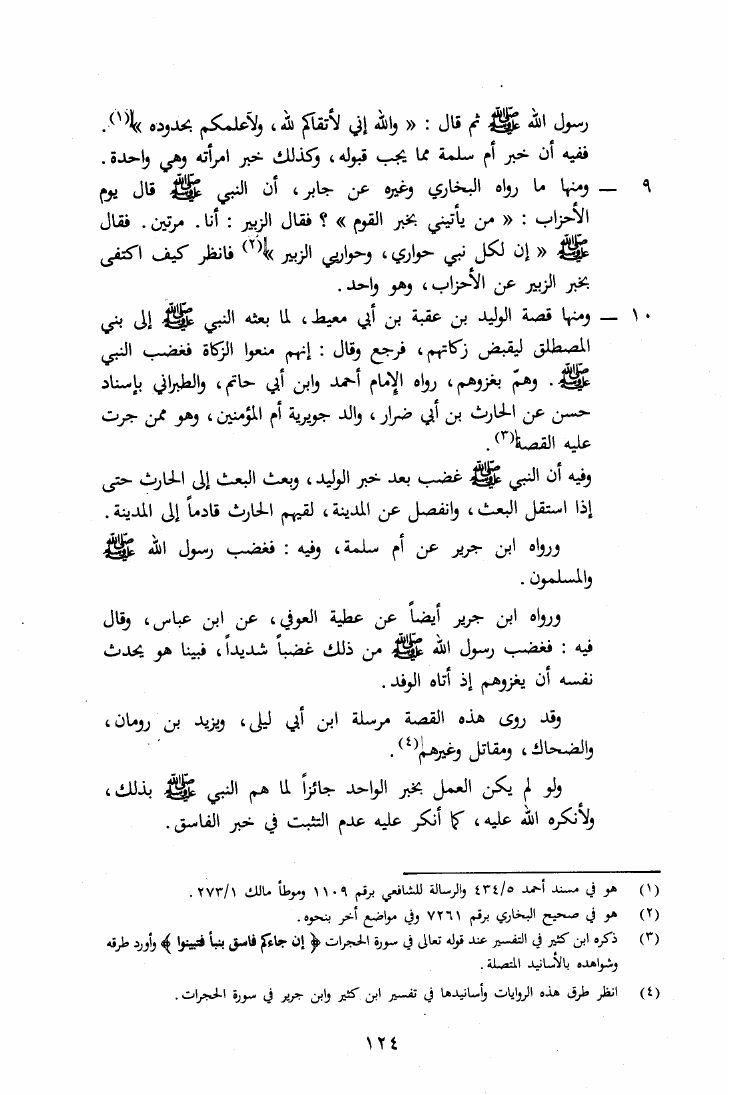 رسول الله ﷺ ثم قال : « والله إني لأتقاكم لله ، ولأعلمكم بحدوده »(١).
ففيه أن خبر أم سلمة مما يجب قبوله ، وكذلك خبر امرأته وهي واحدة .
٩ — ومنها ما رواه البخاري وغيره عن جابر ، أن النبي ﷺ قال يوم
الأحزاب : « من يأتيني بخبر القوم » ؟ فقال الزبير : أنا . مرتين . فقال
ﷺ « إن لكل نبي حواري ، وحواريي الزبير »(٢) فانظر كيف اكتفى
بخبر الزبير عن الأحزاب ، وهو واحد .
١٠ — ومنها قصة الوليد بن عقبة بن أبي معيط ، لما بعثه النبي ﷺ إلى بني
المصطلق ليقبض زكاتهم ، فرجع وقال : إنهم منعوا الزكاة فغضب النبي
ﷺ . وهمّ بغزوهم ، رواه الإمام أحمد وابن أبي حاتم ، والطبراني بإسناد
حسن عن الحارث بن أبي ضرار ، والد جويرية أم المؤمنين ، وهو ممن جرت
عليه القصة(٣) .
وفيه أن النبي ﷺ غضب بعد خبر الوليد ، وبعث البعث إلى الحارث حتى
إذا استقل البعث ، وانفصل عن المدينة ، لقيهم الحارث قادماً إلى المدينة .
ورواه ابن جرير عن أم سلمة ، وفيه : فغضب رسول الله ﷺ
والمسلمون .
ورواه ابن جرير أيضاً عن عطية العوفي ، عن ابن عباس ، وقال
فيه : فغضب رسول الله ﷺ من ذلك غضباً شديداً ، فبينا هو يحدث
نفسه أن يغزوهم إذ أتاه الوفد .
وقد روى هذه القصة مرسلة ابن أبي ليلى ، ويزيد بن رومان ،
والضحاك ، ومقاتل وغيرهم(٤) .
ولو لم يكن العمل بخبر الواحد جائزاً لما هم النبي ﷺ بذلك ،
ولأنكره الله عليه ، كما أنكر عليه عدم التثبت في خبر الفاسق .
(١) هو في مسند أحمد ٤٣٤/٥ والرسالة للشافعي برقم ١١٠٩ وموطأ مالك ٢٧٣/١ .
(٢) هو في صحيح البخاري برقم ٧٢٦١ وفي مواضع أخر بنحوه .
(٣) ذكره ابن كثير في التفسير عند قوله تعالى في سورة الحجرات ﴿ إن جاءكم فاسق بنبأ فتبينوا ﴾ وأورد طرقه
وشواهده بالأسانيد المتصلة .
(٤) انظر طرق هذه الروايات وأسانيدها في تفسير ابن كثير وابن جرير في سورة الحجرات .
١٢٤